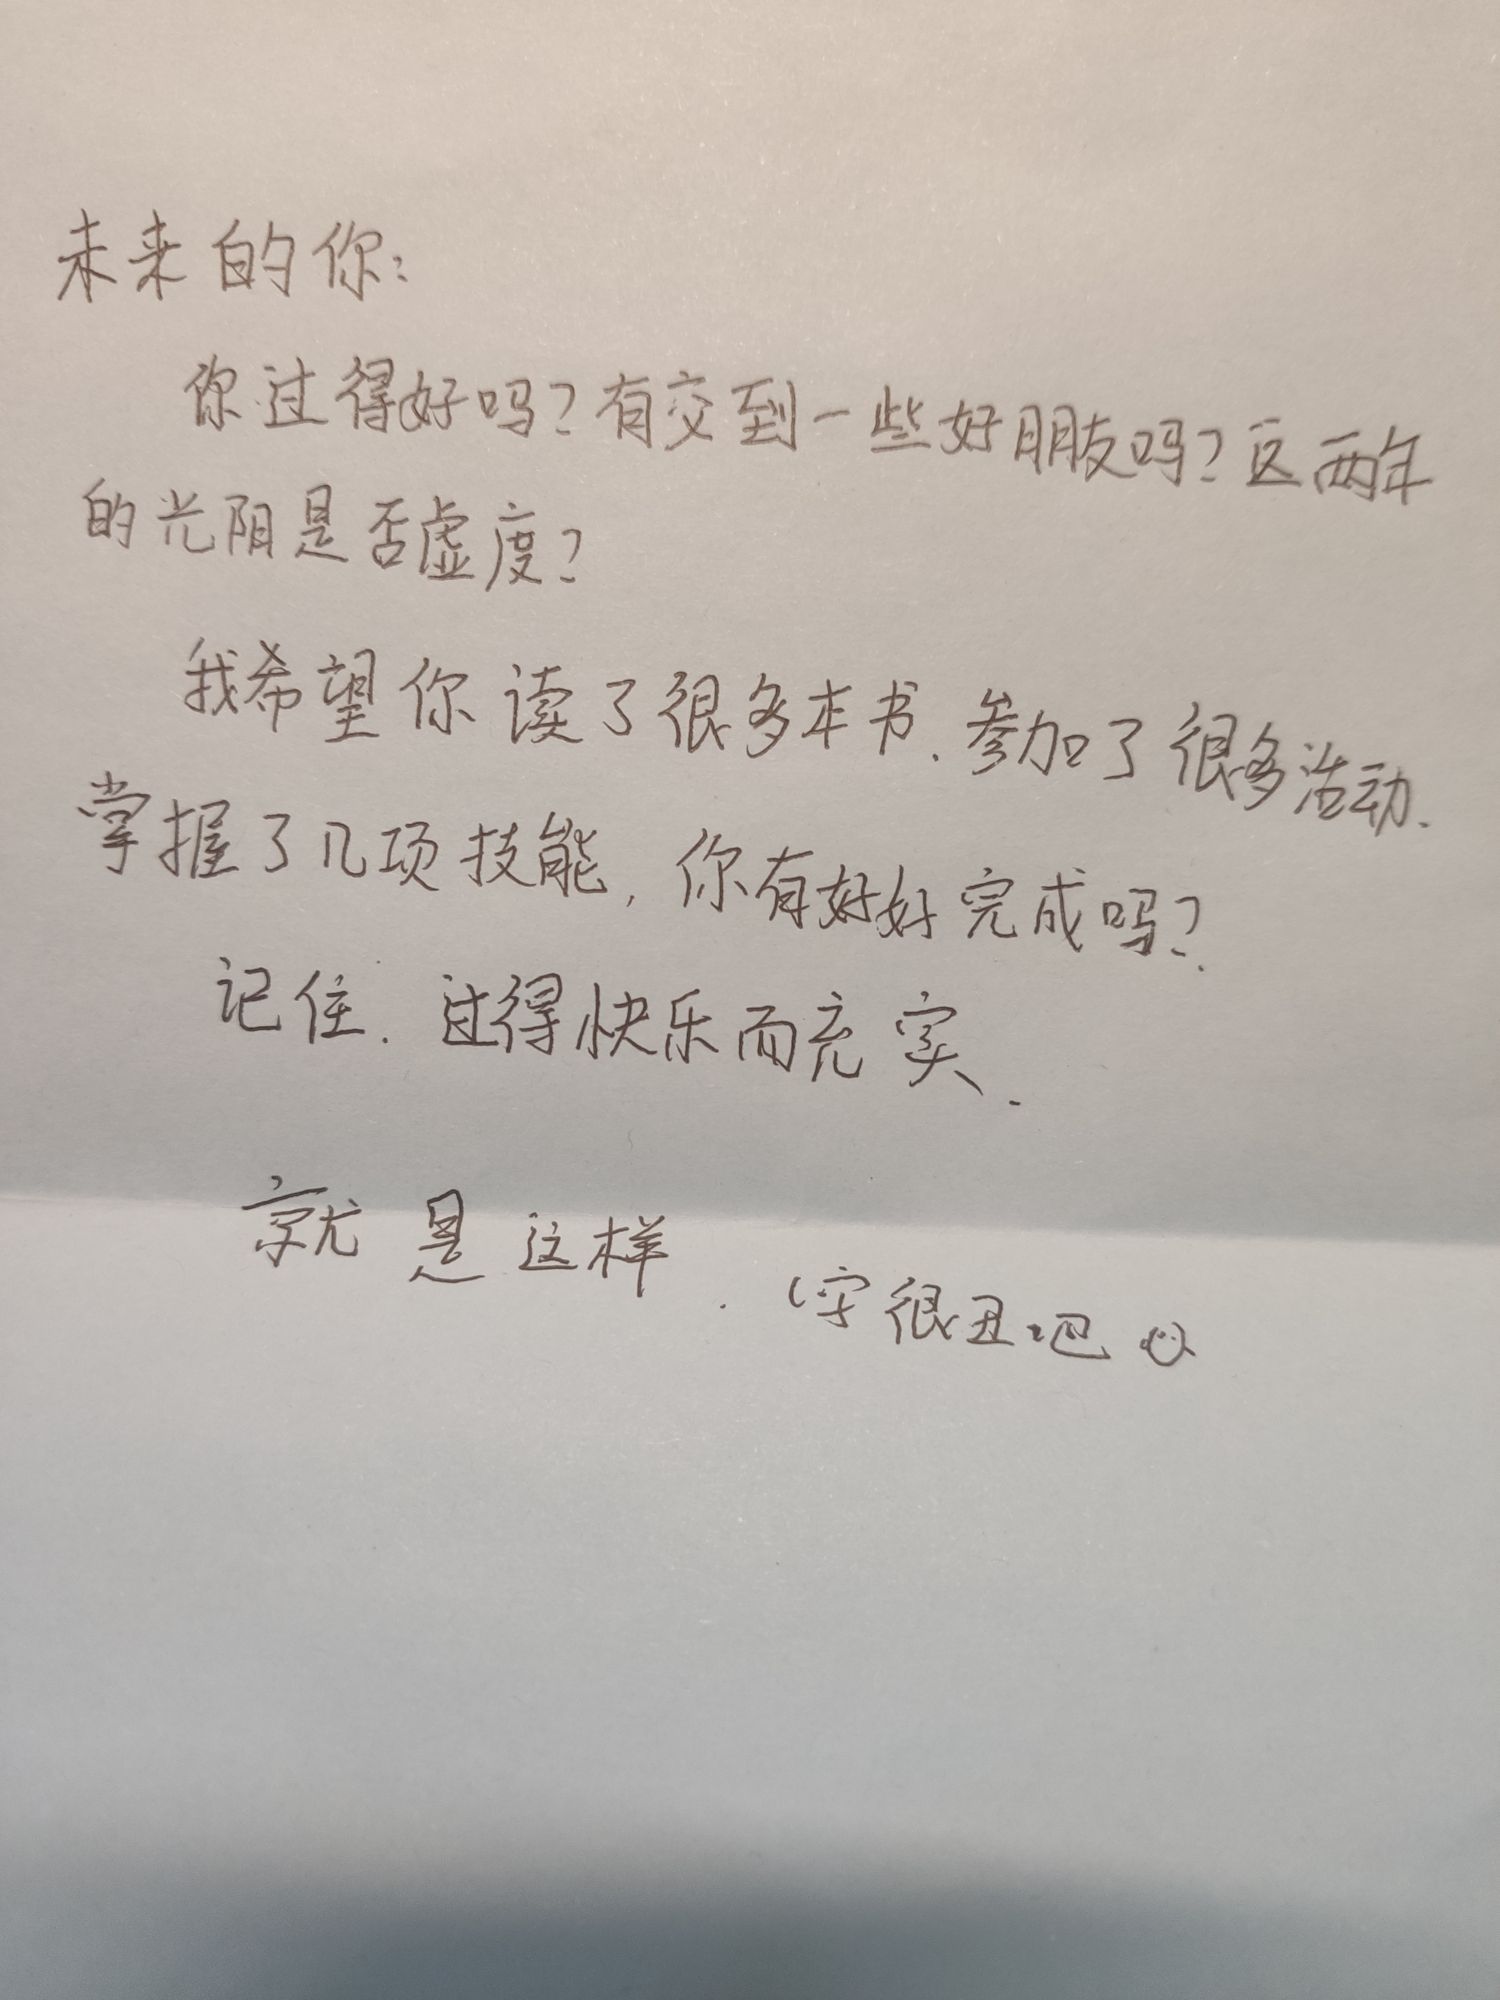 未来的你：
你过得好吗？有交到一些好朋友吗？这两年
的光阴是否虚度？
我希望你读了很多本书.参加了很多活动.
掌握了几项技能，你有好好完成吗？
记住.过得快乐而充实.
就是这样.（字很丑吧